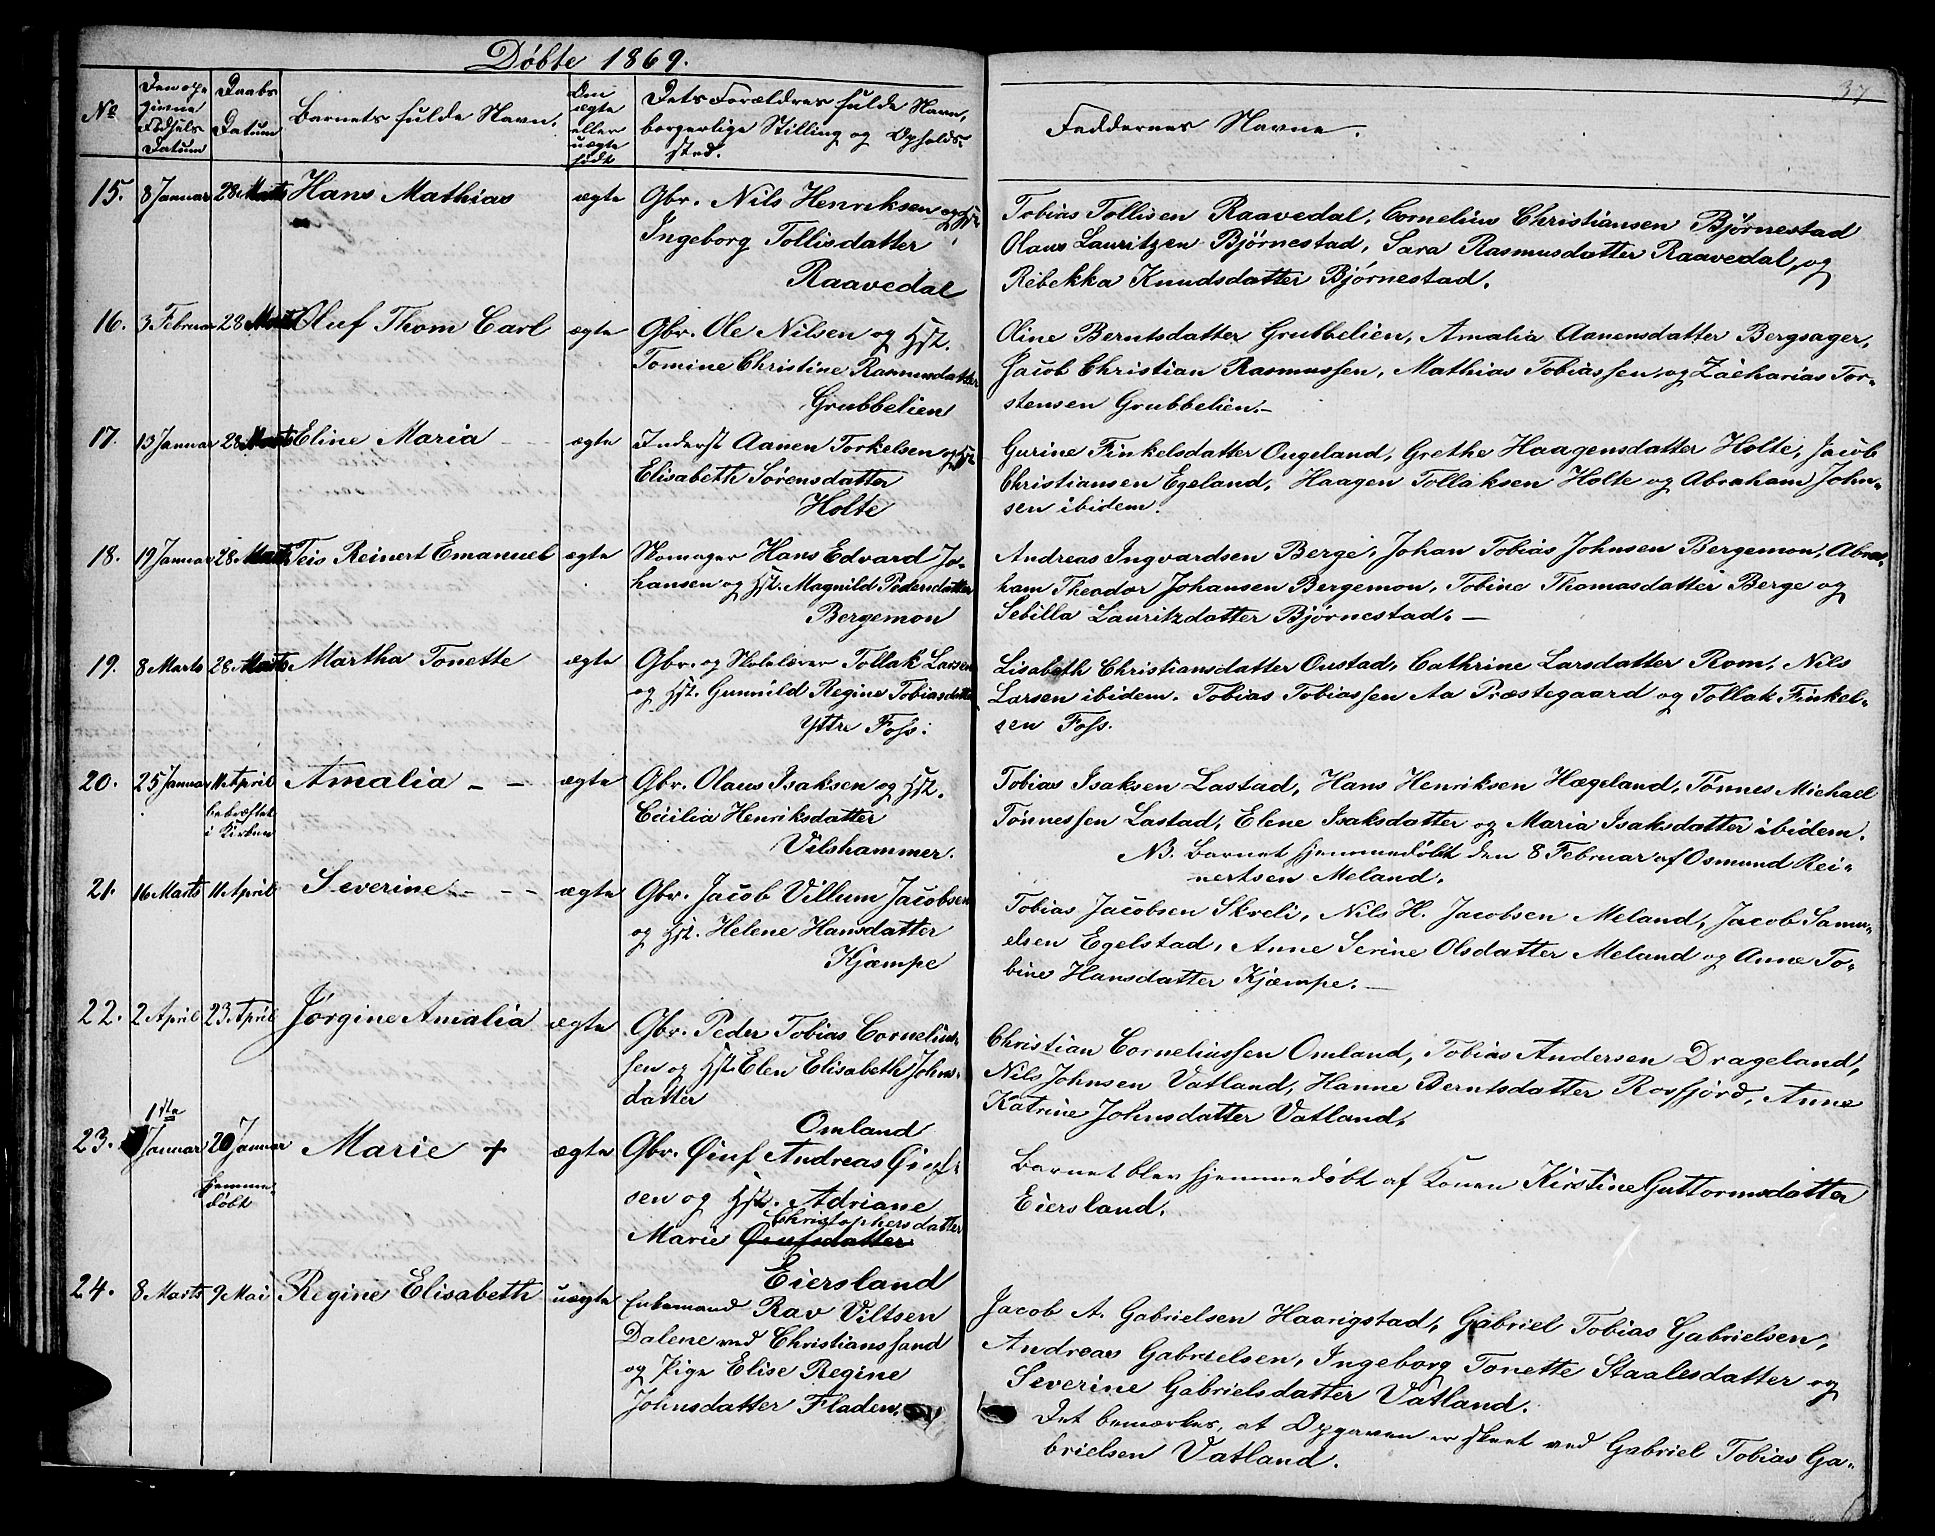 Døbte 1869.
37
No
Den opgivne Fødsels Datum
Daabs Datum
Barnets fulde Navn.
Om ægte eller uægte født
Dets Forældres fulde Navn, borgerlige Stilling og Opholdssted.
Faddernes Navne.
15. 8 Januar 28 Marts Hans Mathias ægte Gbr. Nils Henriksen og Hst.
Ingeborg Tollisdatter
Raavedal
Tobias Tollisen Raavedal, Cornelius Christiansen Bjørnestad
Olaus Lauritzen Bjørnestad, Sara Rasmusdatter Raavedal, og
Rebekka Knudsdatter Bjørnestad.
16. 3 Februar 28 Marts Oluf Thom Carl ægte Gbr. Ole Nilsen og Hst.
Tomine Christine Rasmusdatter
Grubbelien
Oline Berntsdatter Grubbelien, Amalia Aanensdatter Bergsager,
Jacob Christian Rasmussen, Mathias Tobiassen og Zacharias Tor-
stensen Grubbelien.-
17. 13 Januar 28 Marts Eline Maria - - ægte Inderst Aanen Torkelsen og Hst.
Elisabeth Sørensdatter
Holte
Gurine Finkelsdatter Ougeland, Grethe Haagensdatter Holte, Jacob
Christiansen Egeland, Haagen Tollaksen Holte og Abraham John-
sen ibidem.
18. 19 Januar 28 Marts Teis Reinert Emanuel ægte Skomager Hans Edvard Jo-
hansen og Hst. Magnild Pedersdatter
Bergemon
Andreas Ingvardsen Berge, Johan Tobias Johnsen Bergemon, Abra-
ham Theodor Johansen Bergemon, Tobine Thomasdatter Berge og
Sebilla Lauritzdatter Bjørnestad. -
19. 8 Marts 28 Marts Martha Tonette ægte Gbr. og Skolelærer Tollak Larsen
og Hst. Gunnild Regine Tobiasdatter
Yttre Foss.
Lisabeth Christiansdatter Oustad, Cathrine Larsdatter Rom, Nils
Larsen ibidem. Tobias Tobiassen Aa Præstegaard og Tollak Finkel-
sen Foss.
20. 25 Januar 11 April Amalia - - ægte Gbr. Olaus Isaksen og Hst.
bekræftet
i Kirken
Cäcilia Henriksdatter
Vilshammer.
Tobias Isaksen Lastad, Hans Henriksen Hægeland, Tønnes Michael
Tønnessen Lastad, Elene Isaksdatter og Maria Isaksdatter ibidem.
NB. Barnet hjemmedøbt den 8 Februar af Osmund Rei-
nertsen Meland.
21. 16 Marts 11 April Severine - - - ægte Gbr. Jacob Villum Jacobsen
og Hst. Helene Hansdatter
Kjæmpe
Tobias Jacobsen Skreli, Nils H. Jacobsen Meland, Jacob Samu-
elsen Egelstad, Anne Serine Olsdatter Meland og Anne To-
bine Hansdatter Kjæmpe. -
22. 2 April 23 April Jørgine Amalia ægte Gbr. Peder Tobias Cornelius-
sen og Hst. Elen Elisabeth Johns-
datter
Omland
Christian Corneliussen Omland, Tobias Andersen Drageland,
Nils Johnsen Vatland, Hanne Berntsdatter Rosfjord, Anne
Katrine Johnsdatter Vatland.
23. 1ste Januar 20 Januar Marie + ægte Gbr. Øiuf Andreas Øiuf-
hjemme-
døbt
sen og Hst. Adriane
Christophersdatter
Marie Øiufsdatter
Eiersland
Barnet blev hjemmedøbt af Konen Kirstine Guttormsdatter
Eiersland.
24. 8 Marts 9 Mai Regine Elisabeth uægte Enkemand Rav Viltsen
Dalene ved Christianssand
og Pige Elise Regine
Johnsdatter Fladen.
Jacob A. Gabrielsen Haarigstad, Gabriel Tobias Gabrielsen,
Andreas Gabrielsen, Ingeborg Tonette Staalesdatter og
Severine Gabrielsdatter Vatland.
Det bemærkes, at Opgaven er skeet ved Gabriel Tobias Ga-
brielsen Vatland.